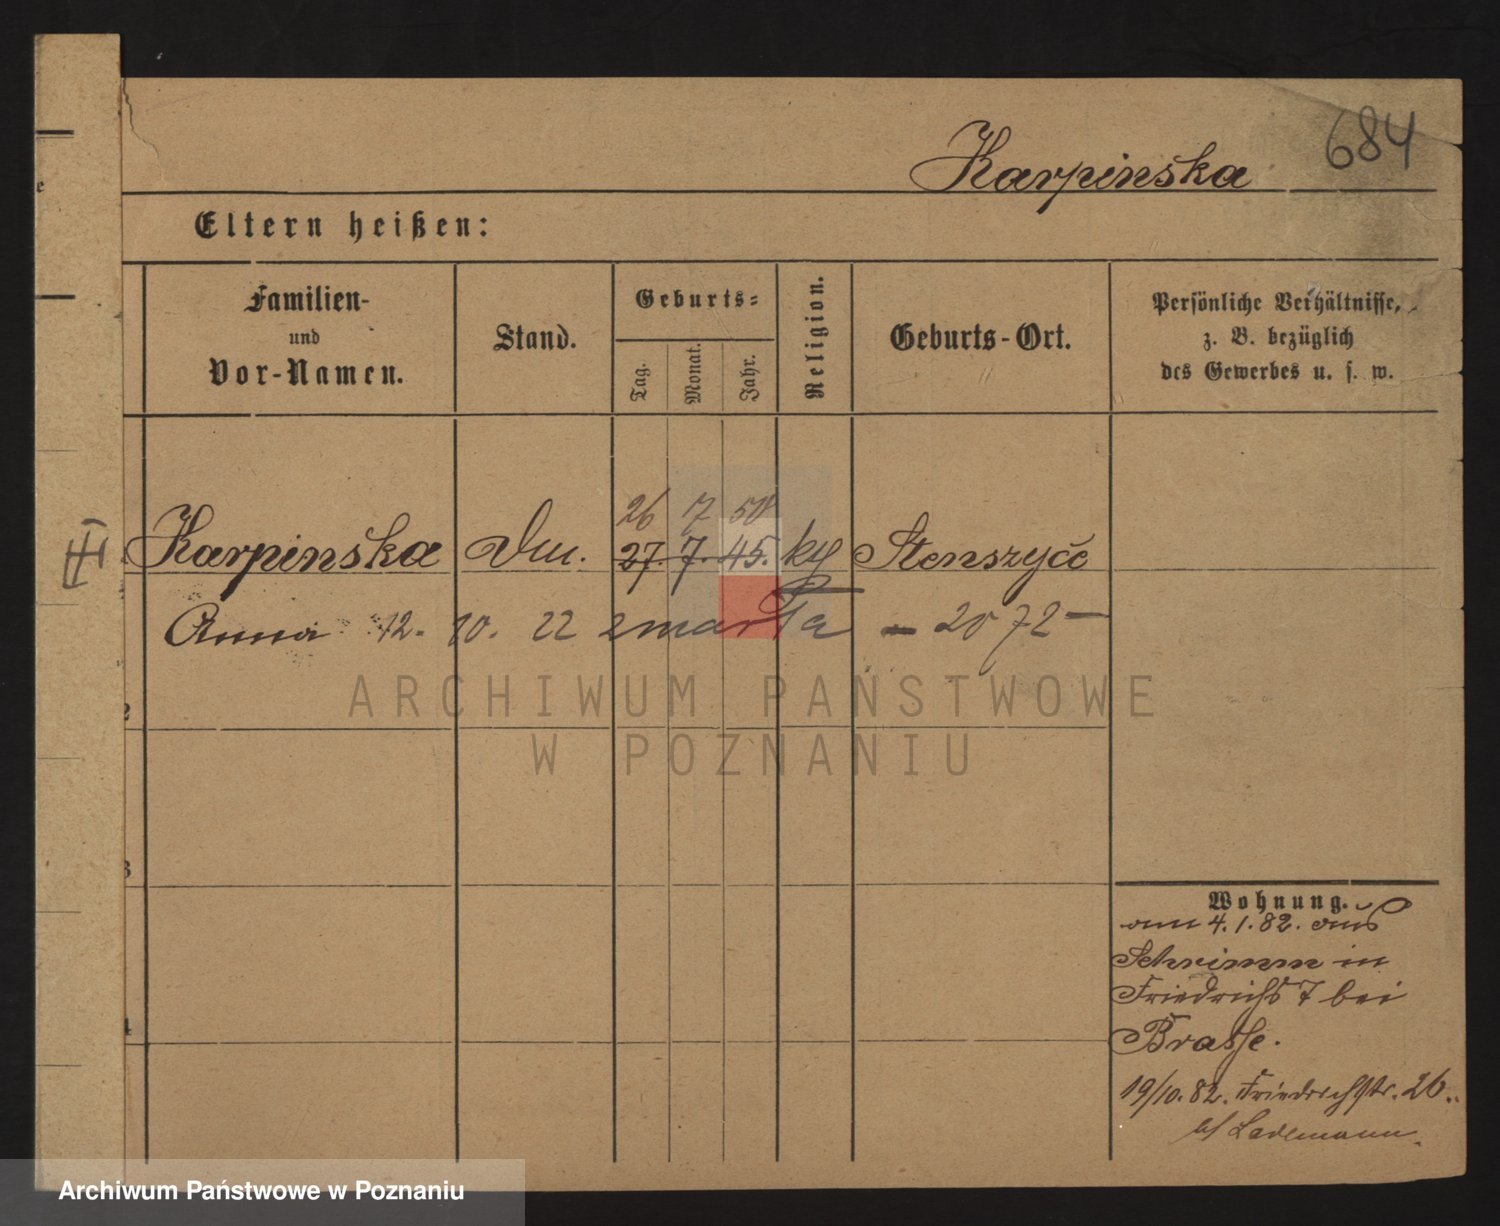 684
Karpinska
Eltern heißen:
Familien-
und
Vor-Namen.
Stand.
Geburts-
Tag.
Monat.
Jahr.
Religion.
Geburts-Ort.
Persönliche Verhältnisse,
z. B. bezüglich
des Gewerbes u. s. w.
26 7 50
Karpinska 27. 7. 45. Stenszyce
Anna 12. 10. 22 zmarła - 2072 -
ARCHIWUM PAŃSTWOWE
W POZNANIU
2
3
4
Wohnung.
am 4.1.82. aus
Schrimm in
Friedrichs 7 bei
Brasse.
19/10.82. Friedrichstr. 26.
Ladlemann.
Archiwum Państwowe w Poznaniu